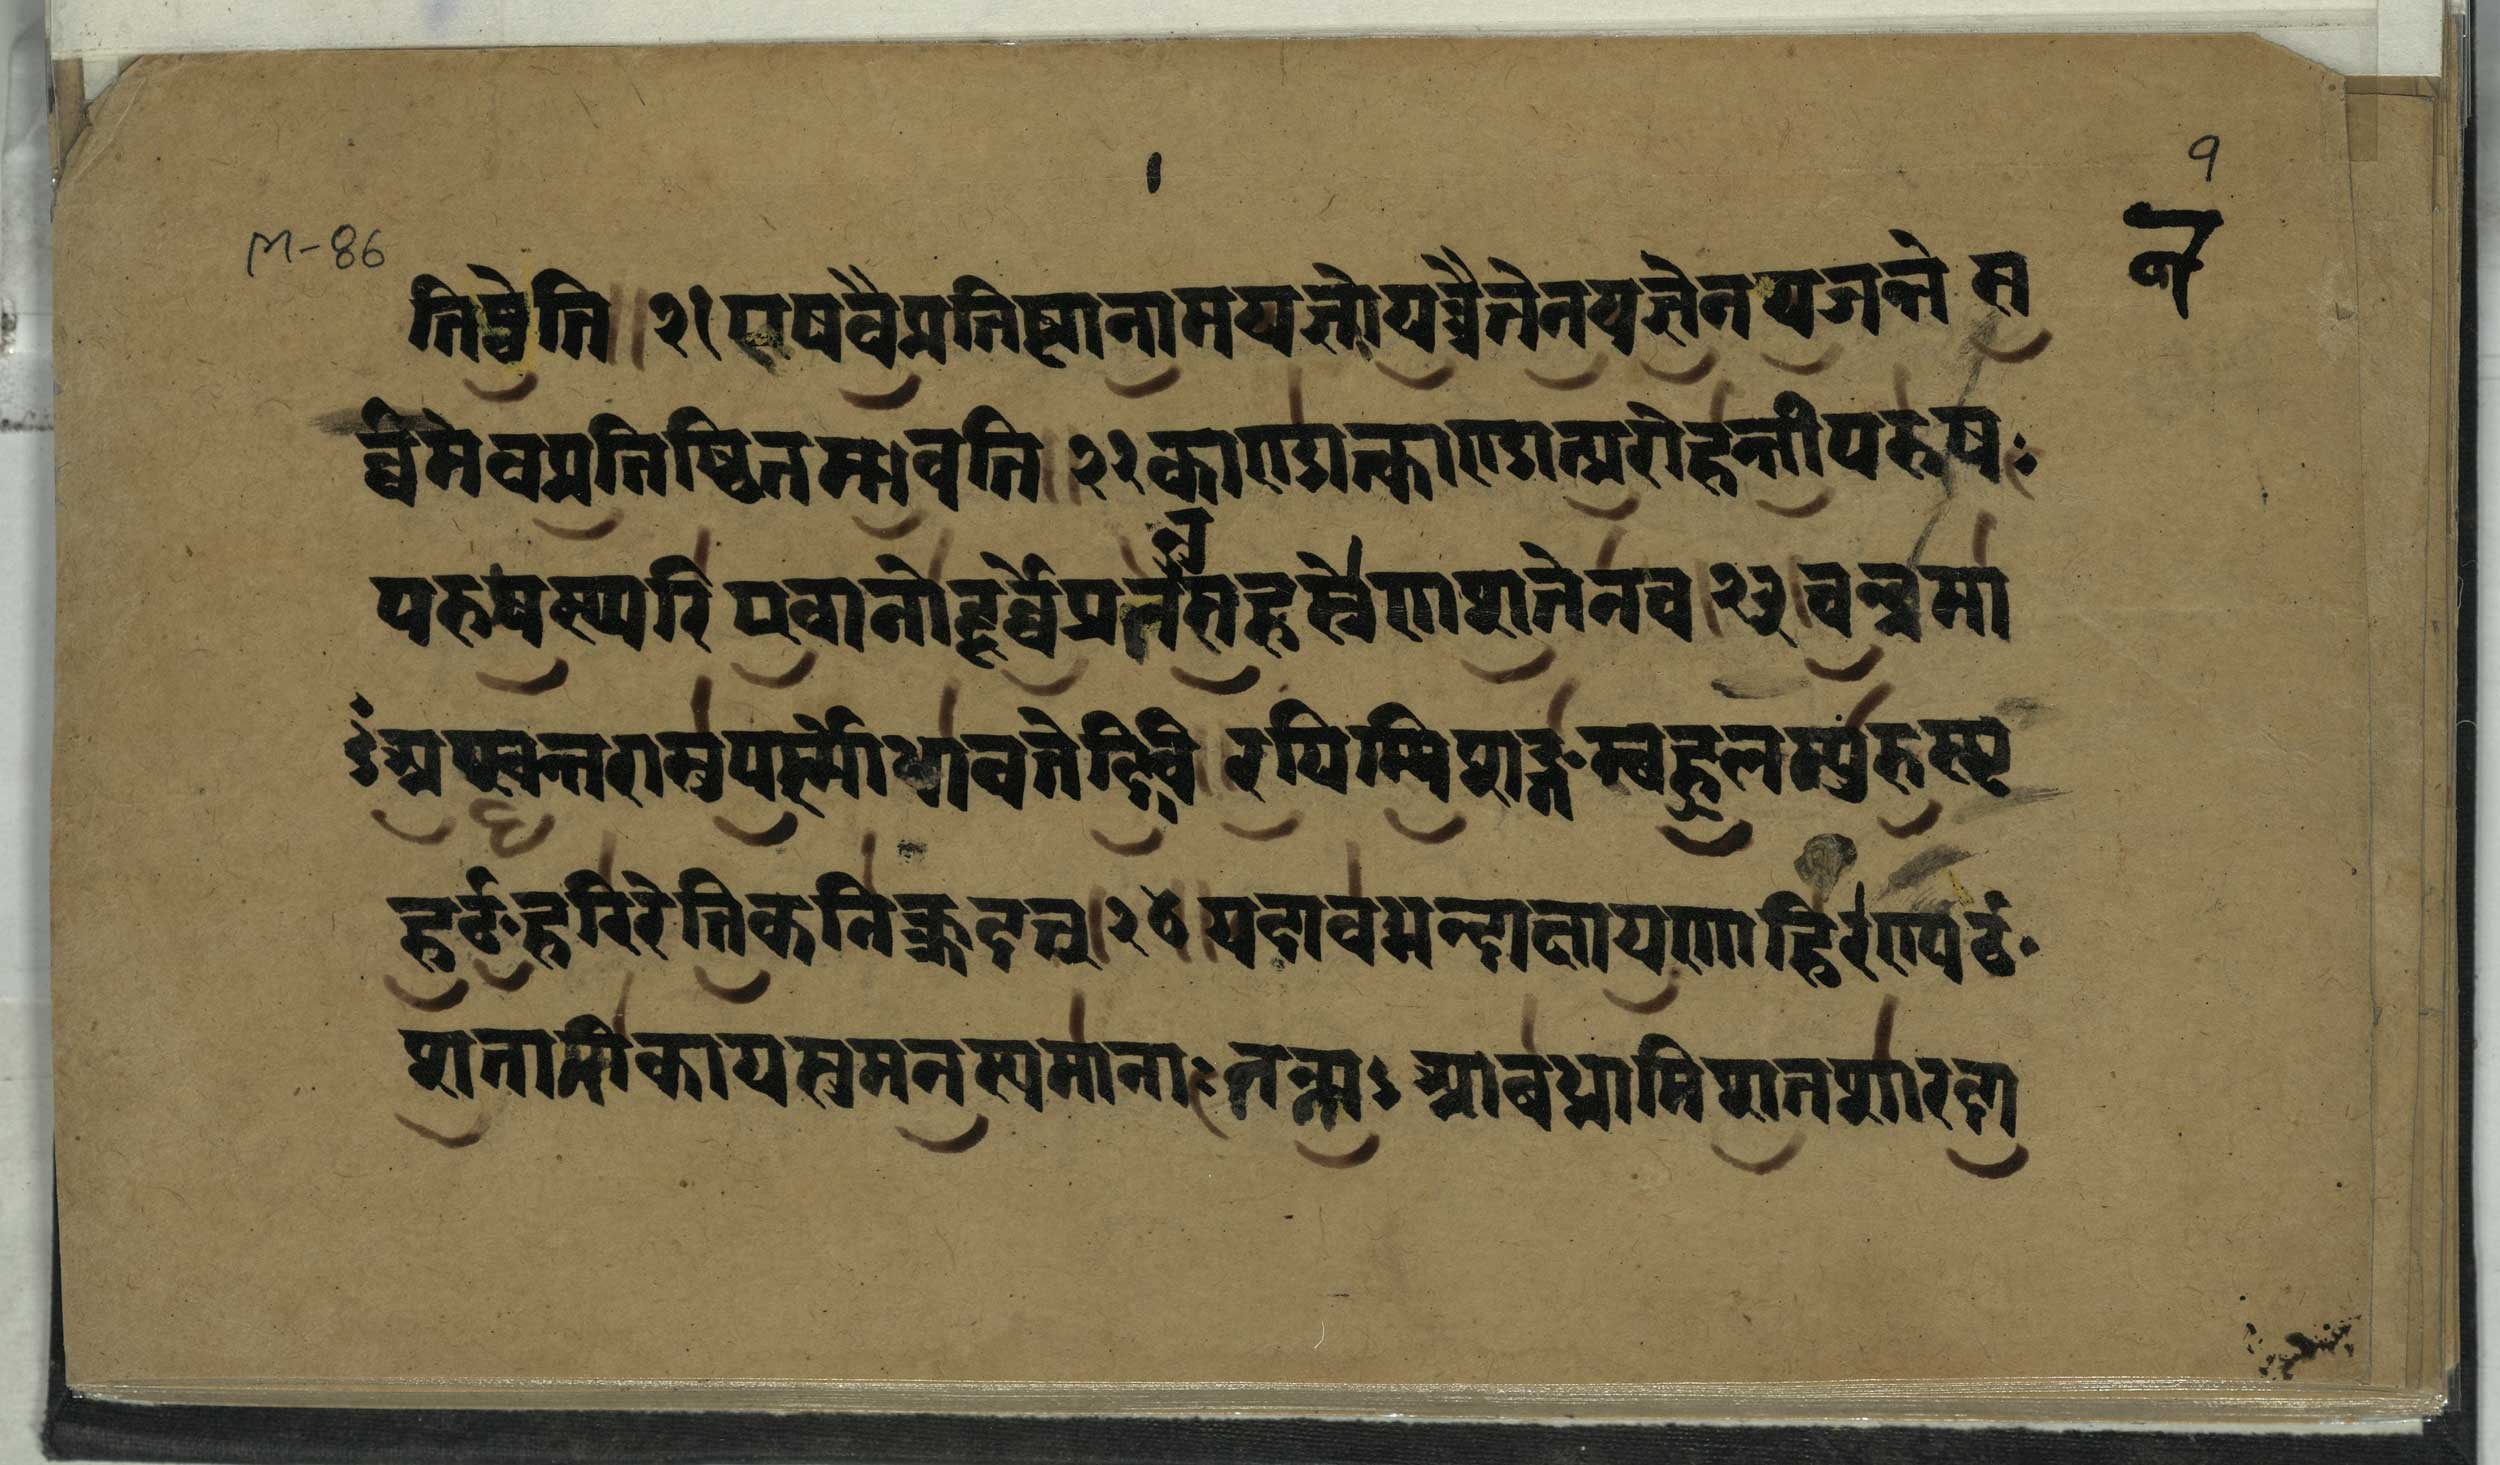 १
M-86
तिष्ठेति ॥ २१ एष वै प्रतिष्ठा नाम यज्ञो यत्रैतेन यज्ञेन यजन्ते स
र्व्वमेव प्रतिष्ठितम्भवति ॥ २२ काण्डात्काण्डात्प्ररोहन्ती परुषः
परुषस्परि एवानो दूर्व्वे प्रतनु सहस्रेण शतेन च ॥ २३ चन्द्रमा
ऽअप्स्वन्तरा सुपर्णो धावते दिवि ॥ रयिम्पिशङ्गम्बहुलम्पुरुस्पृ
हर्ठ० हरिरेति कनिक्क्रदत् ॥ २४ ॥ यदाबध्नन्दाक्षायणा हिरण्यर्ठ०
शतानीकाय सुमनस्यमानाः तन्मऽ आबध्नामि शतशारदा